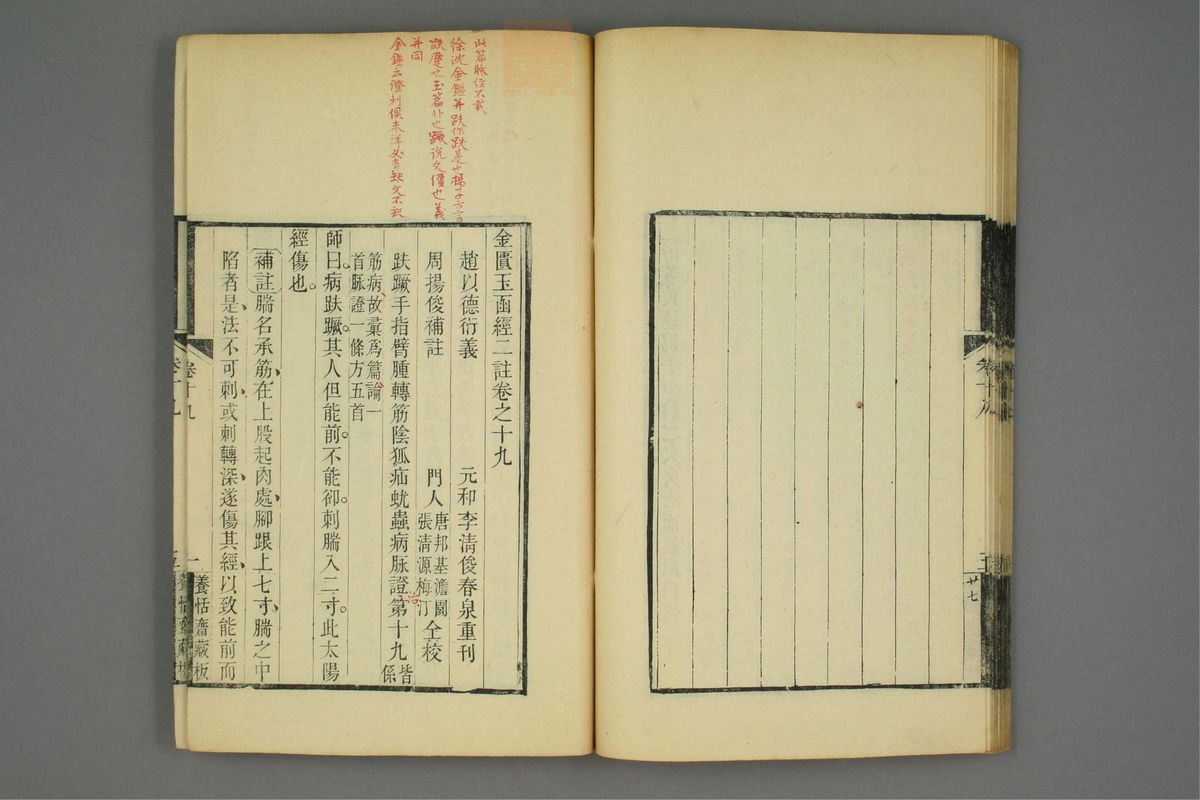 卷十八
廿七
此篇脉經不載
徐沈金鑑并趺作跌是也楊子方言
跌蹷也玉篇仆也蹶說文僵也義
并同
金鑑云證刺俱未詳必有缺文不釋
金匱玉函經二註卷之十九
趙以德衍義 元和李清俊春泉重刊
周揚俊補註 門人唐邦基澹園張清源梅汀仝校
趺蹶手指臂腫轉筋陰狐疝蚘蟲病脉證第十九皆係
治
筋病故彙爲篇論一
首脉證一條方五首
師曰。病趺蹶。其人但能前。不能卻。刺腨入二寸。此太陽
經傷也。
補註腨名承筋、在上股起肉處、腳跟上七寸、腨之中
陷者是、法不可刺、或刺轉深、遂傷其經、以致能前而
卷十九
一
養恬齋藏板